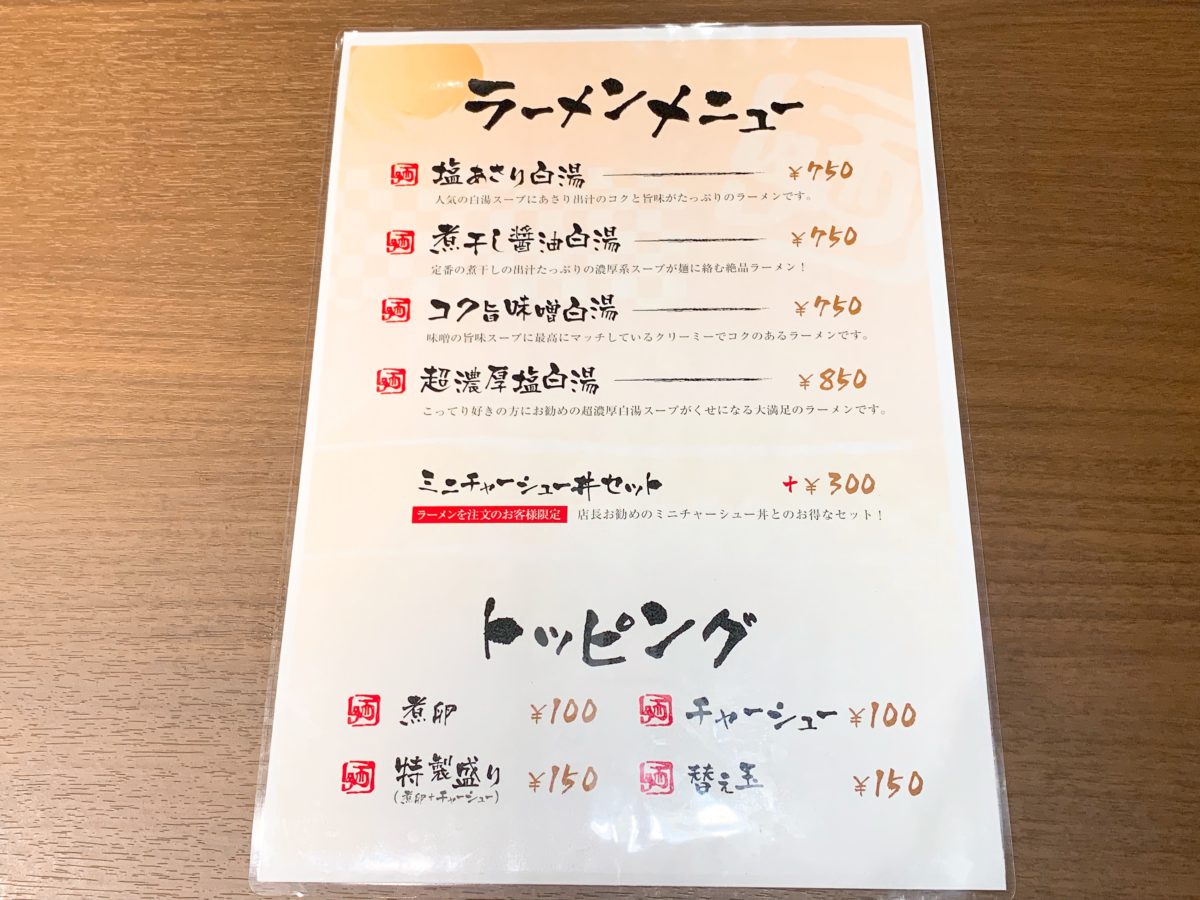 ラーメンメニュー
麺 塩あさり白湯 ¥750
人気の白湯スープにあさり出汁のコクと旨味がたっぷりのラーメンです。
麺 煮干し醤油白湯 ¥750
定番の煮干しの出汁たっぷりの濃厚系スープが麺に絡む絶品ラーメン！
麺 コク旨味噌白湯 ¥750
味噌の旨味スープに最高にマッチしているクリーミーでコクのあるラーメンです。
麺 超濃厚塩白湯 ¥850
こってり好きの方にお勧めの超濃厚白湯スープがくせになる大満足のラーメンです。
ミニチャーシュー丼セット +¥300
ラーメンを注文のお客様限定 店長お勧めのミニチャーシュー丼とのお得なセット！
トッピング
麺 煮卵 ¥100 麺 チャーシュー ¥100
麺 特製盛り ¥150 麺 替え玉 ¥150
(煮卵+チャーシュー)